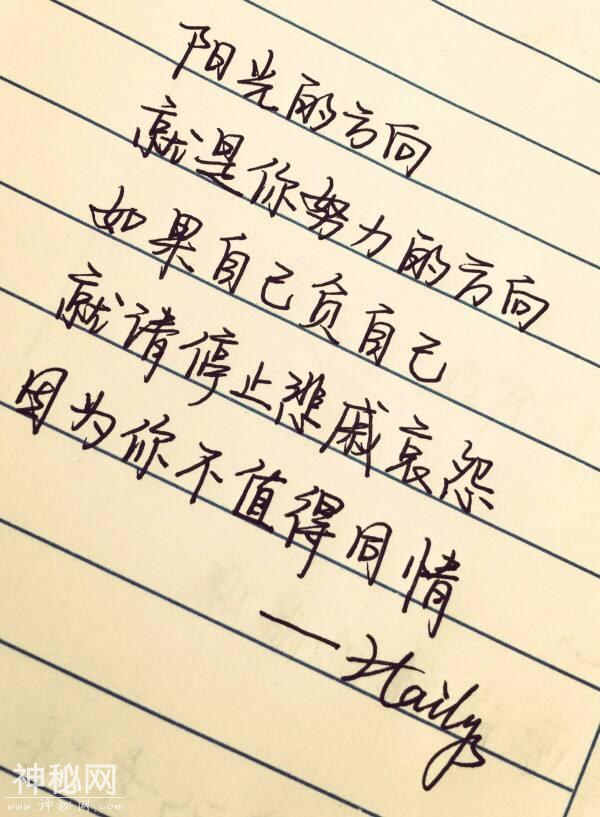 阳光的方向
就是你努力的方向
如果自己负自己
就请停止悲戚哀怨
因为你不值得同情
神秘网
www.神秘网.com